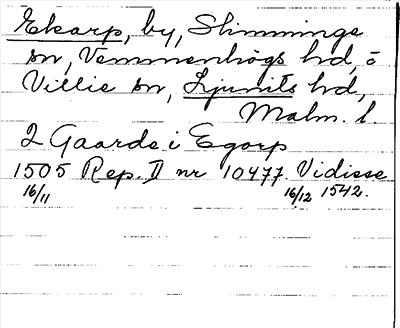 Ekarp, by, Slimminge
sn, Vemmenhögs hd, o
Villie sn, Ljunits hd,
Malm. l
2 Gaarde i Egorp
1505 Rep. II nr 10477. Vidisse
16/11 16/12 1542.